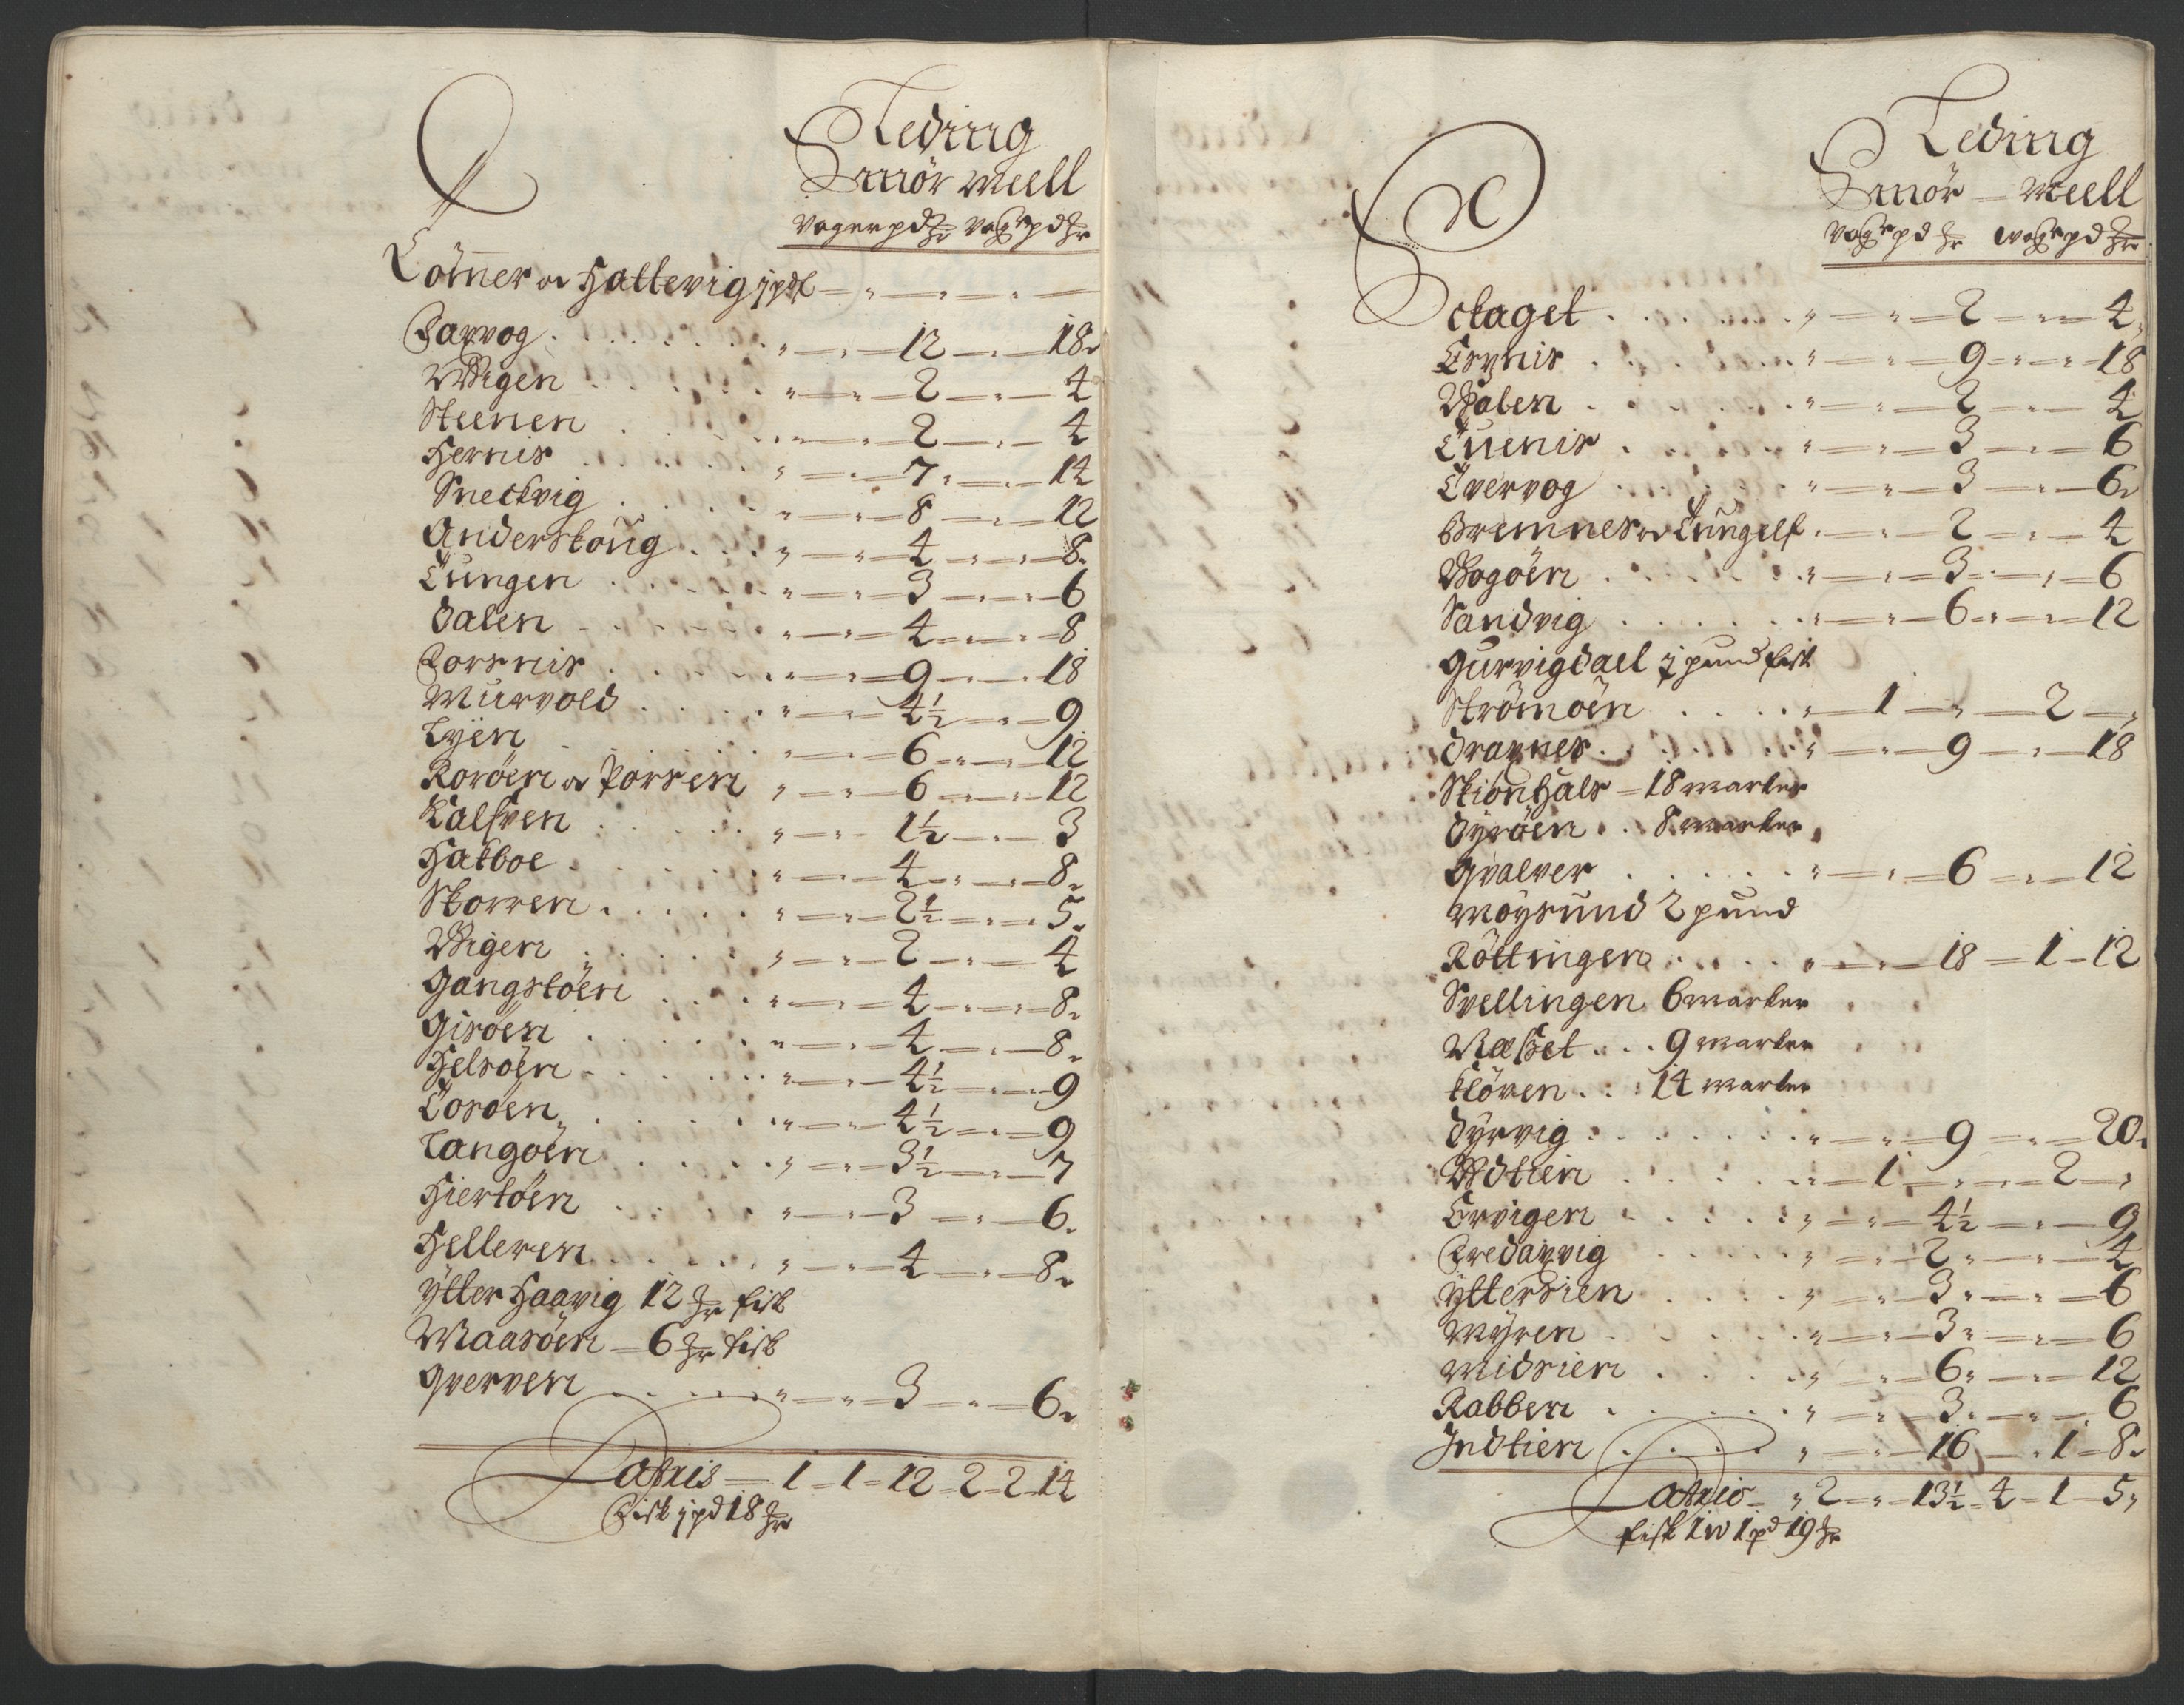 Leding
Smör Meell
Voger pd ℔r Vogr pd ℔r
Lömer oc Hattevig j pdf – „ – „ – „ –
Farvog . . . . „ – „ – 12 – „ – 18
Wigen . . . . „ – „ – 2 – „ – 4
Steenen . . . . „ – „ – 2 – „ – 4
Hernis . . . . „ – „ – 7 – „ – 14
Sneckvig . . . . „ – „ – 8 – „ – 12
Anderskoug . . . „ – „ – 4 – „ – 8
Tungen . . . . „ – „ – 3 – „ – 6
Dalen . . . . „ – „ – 4 – „ – 8
Forsnis . . . . „ – „ – 9 – „ – 18
Murvold . . . . „ – „ – 4½ – „ – 9
Lyen . . . . „ – „ – 6 – „ – 12
Roröen oc Porsen „ – „ – 6 – „ – 12
Kalfven . . . . „ – „ – 1½ – „ – 3
Hatboe . . . . „ – „ – 4 – „ – 8
Skorren . . . . „ – „ – 2½ – „ – 5
Wigen . . . . „ – „ – 2 – „ – 4
Gangstöen . . . . „ – „ – 4 – „ – 8
Gisöen . . . . „ – „ – 4 – „ – 8
Helsöen . . . . „ – „ – 4½ – „ – 9
Tosöen . . . . „ – „ – 4½ – „ – 9
Langöen . . . . „ – „ – 3½ – „ – 7
Hiertöen . . . . „ – „ – 3 – „ – 6
Helleren . . . . „ – „ – 4 – „ – 8
Ytter Haavig 12 ℔r fisk
Maasöen – 6 ℔r fisk
Qverven . . . . „ – „ – 3 – „ – 6
Lateris – 1 – 1 – 12 – 2 – 2 – 14
Fisk j pd 18 ℔r
Leding
Smör – Meell
Vogr pd ℔r Wogr pd ℔r
Staget . . . . „ – „ – 2 – „ – 4
Ervnis . . . . „ – „ – 9 – „ – 18
Walen . . . . „ – „ – 2 – „ – 4
Tuenis . . . . „ – „ – 3 – „ – 6
Tvervog . . . . „ – „ – 3 – „ – 6
Bremnes oc Tungelf . „ – „ – 2 – „ – 4
Wogöen . . . . „ – „ – 3 – „ – 6
Sandvig . . . . „ – „ – 6 – „ – 12
Gurvigdael j pund fisk
Strömöen . . . . „ – 1 – „ – 2 – „
Dragnes . . . . „ – „ – 9 – „ – 18
Skionhals – 18 marker
Dyröen . . 8 marker
Qvalver . . . . „ – „ – 6 – „ – 12
Moysund 2 pund
Röttingen . . . . „ – „ – 18 – 1 – 12
Svellingen 6 marker
Wæsset . . . 9 marker
Klöven . . : 14 marker
Dyrvig . . . . „ – „ – 9 – „ – 20
Udtien . . . . „ – 1 – „ – „ – 2 – „
Ervigen . . . . „ – „ – 4½ – „ – 9
Fredagvig . . . . „ – „ – 2 – „ – 4
Yttersien . . . . „ – „ – 3 – „ – 6
Myren . . . . „ – „ – 3 – „ – 6
Midsien . . . . „ – „ – 6 – „ – 12
Rabben . . . . „ – „ – 3 – „ – 6
Indtien . . . . „ – „ – 16 – „ 1 – 8
Lateris – „ 2 – „ – 13½ – 4 – 1 – 5
fisk 1 W 1 pd 19 ℔r